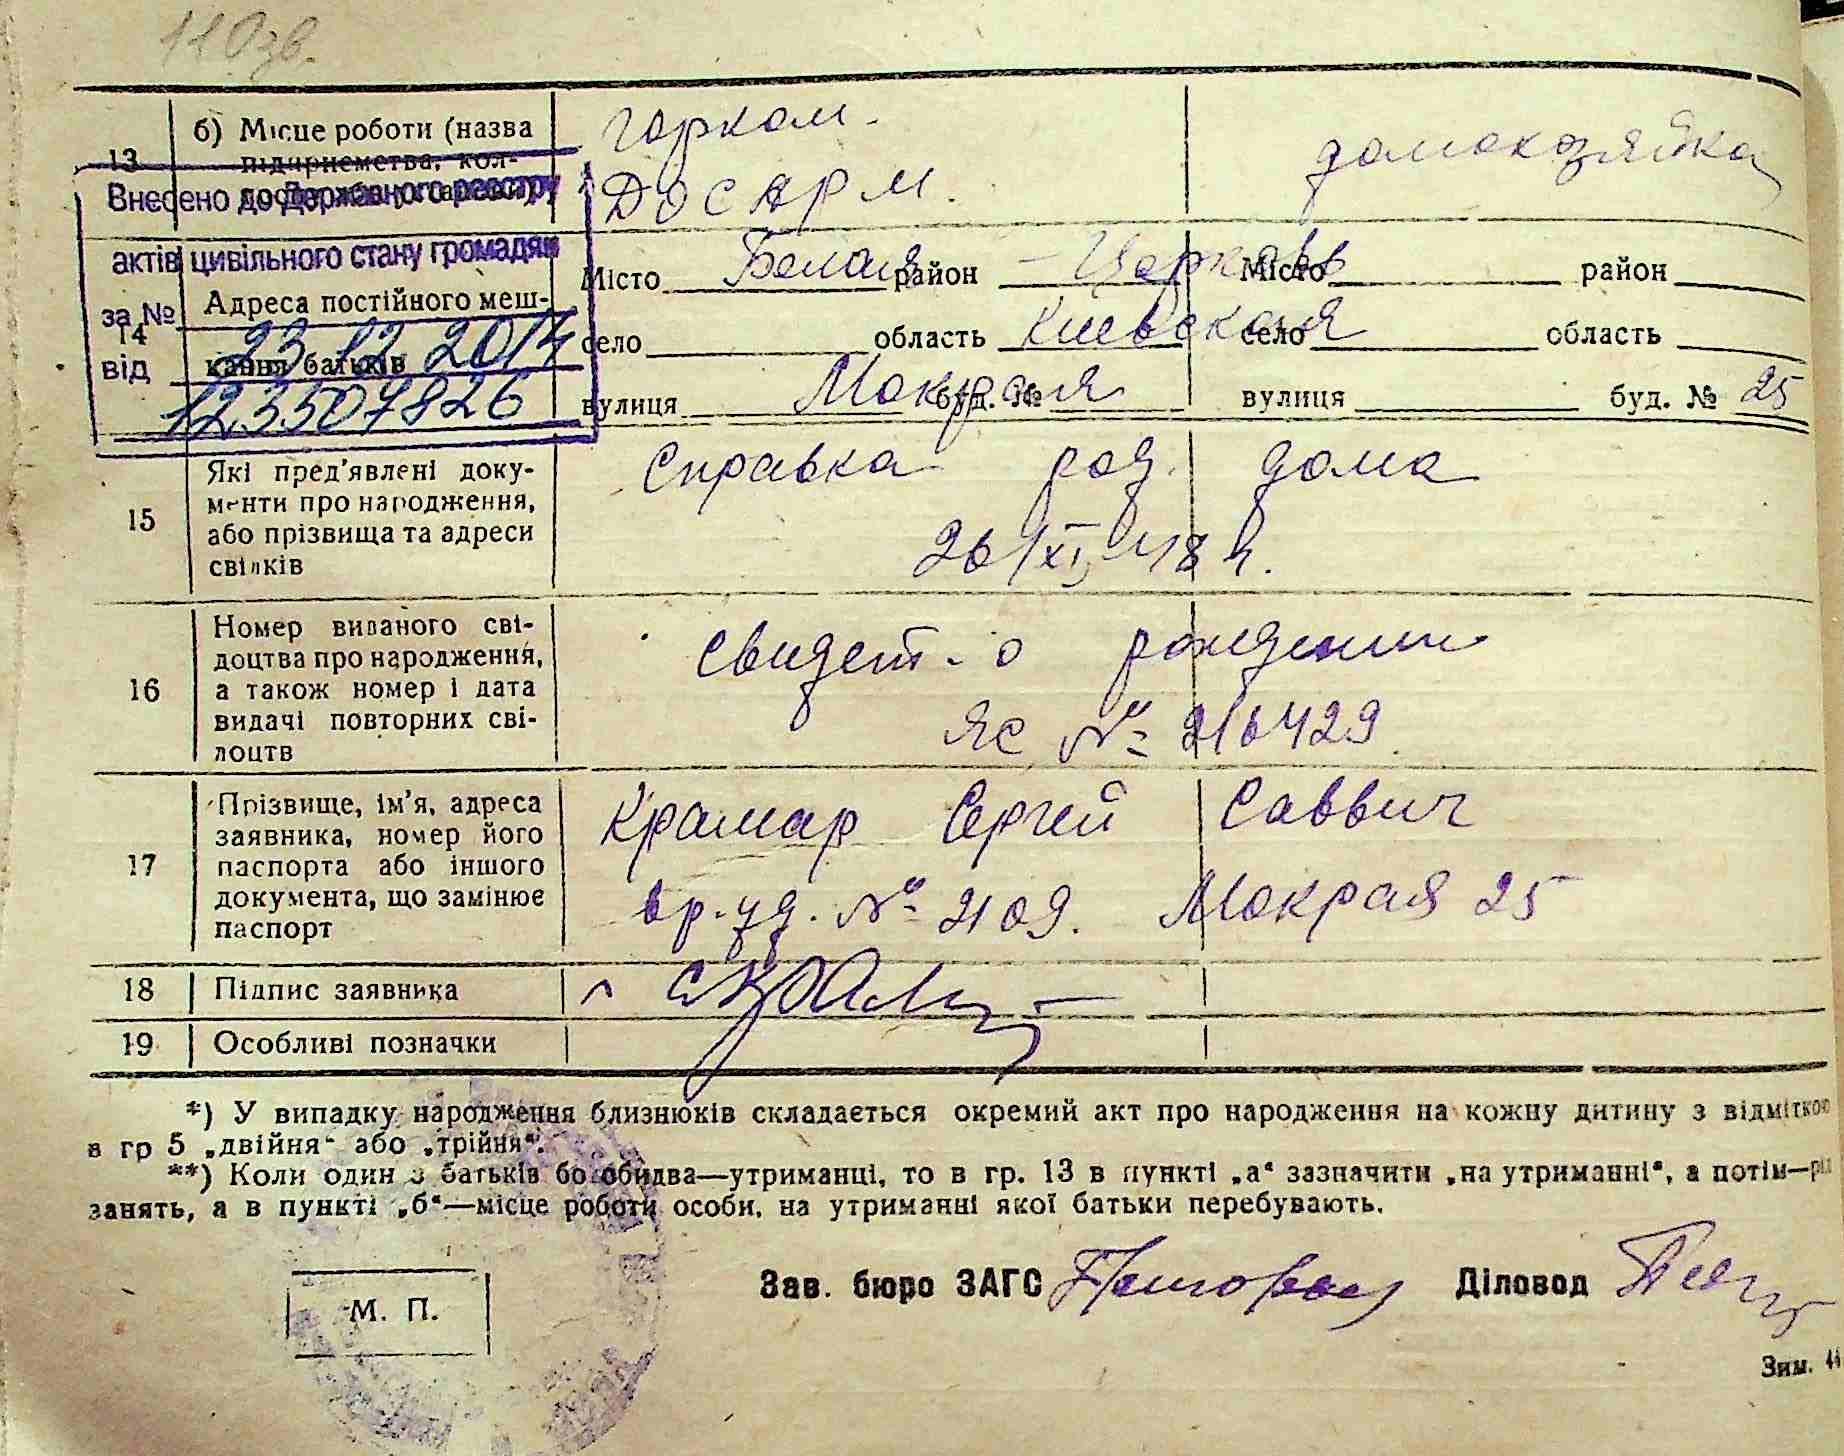 110зв.
13
б) Місце роботи (назва
підприємства, кол-
Внесено до Державного реєстру
горком.
ДОСАРМ.
домохозяйка
актів цивільного стану громадян
за №
23.12.2014
від
123507826
14
Адреса постійного меш-
кання батьків
Місто Белая район - Церковь Місто район
село область Киевская село область
вулиця Мокрая буд. № вулиця буд. № 25
15
Які пред'явлені доку-
менти про народження,
або прізвища та адреси
свідків
Справка род. дома
26/XI 48 г.
16
Номер виданого сві-
доцтва про народження,
а також номер і дата
видачі повторних сві-
доцтв
Свидет-о рождении
ЯС № 216429
17
Прізвище, ім'я, адреса
заявника, номер його
паспорта або іншого
документа, що замінює
паспорт
Крамар Сергей Саввич
вр.уд. № 2109. Мокрая 25
18 Підпис заявника
19 Особливі позначки
*) У випадку народження близнюків складається окремий акт про народження на кожну дитину з відміткою
в гр 5 „двійня“ або „трійня“.
**) Коли один з батьків бо обидва—утриманці, то в гр. 13 в пункті „а“ зазначити „на утриманні“, а потім—рід
занять, а в пункті „б“—місце роботи особи, на утриманні якої батьки перебувають.
Зав. бюро ЗАГС Діловод
М. П.
Зим. 44